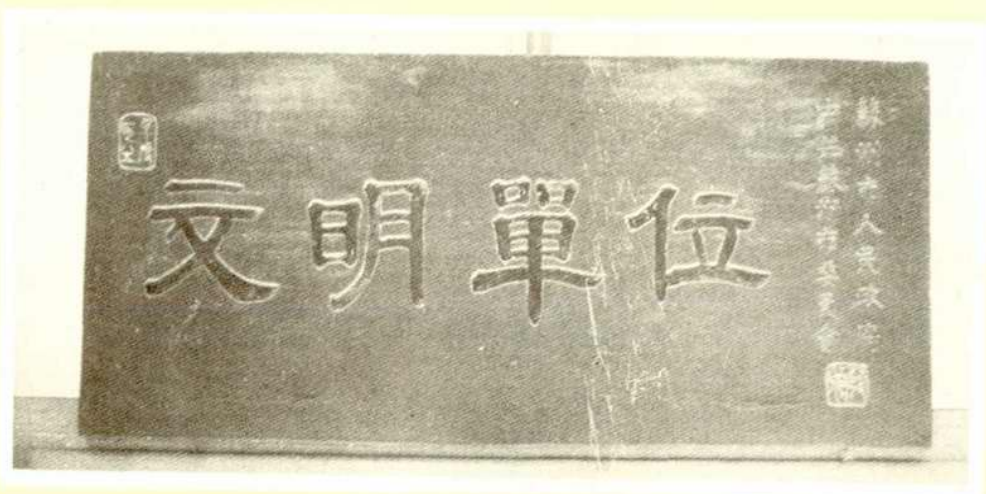 文明單位
蘇州市人民政府
中共蘇州市委員會